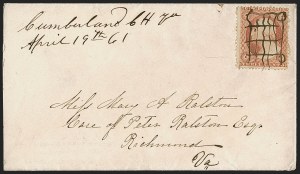 Cumberland C H Va
April 19th 61
Miss Mary A Ralston
Care of Peter Ralston Esqr
Richmond
Va